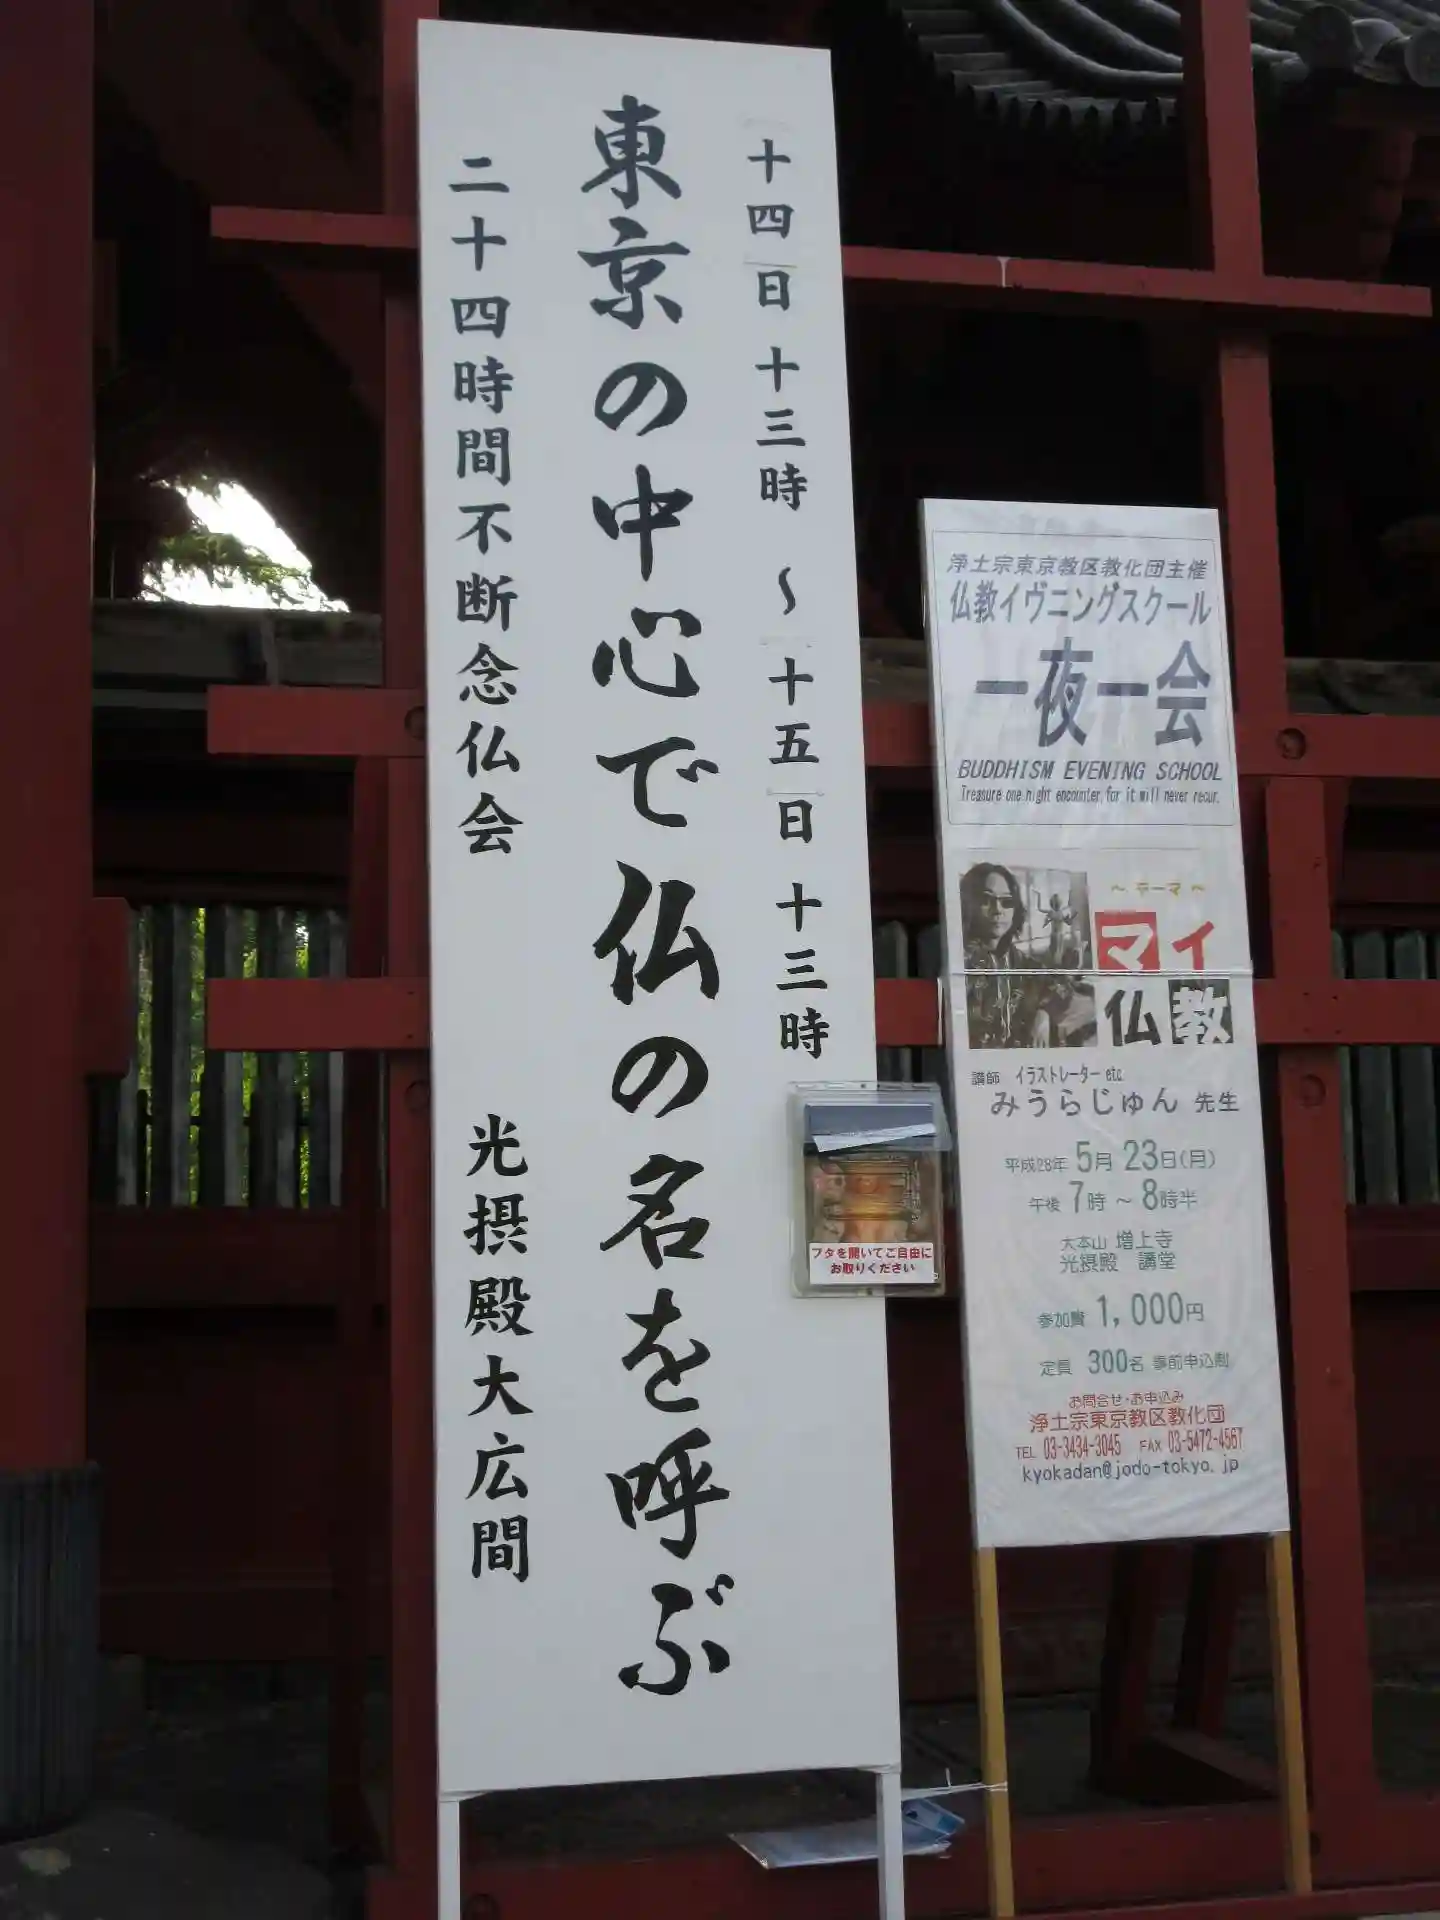 十四日 十三時 〜 十五日 十三時
東京の中心で仏の名を呼ぶ
二十四時間不断念仏会 光摂殿大広間
フタを開いてご自由に
お取りください
浄土宗東京教区教化団主催
仏教イヴニングスクール
一夜一会
BUDDHISM EVENING SCHOOL
Treasure one night encounter, for it will never recur.
〜 テーマ 〜
マイ
仏教
講師 イラストレーター etc
みうらじゅん 先生
平成28年 5月 23日(月)
午後 7時 〜 8時半
大本山 増上寺
光摂殿 講堂
参加費 1,000円
定員 300名 事前申込制
お問合せ・お申込み
浄土宗東京教区教化団
TEL 03-3434-3045 FAX 03-5472-4567
kyokadan@jodo-tokyo.jp